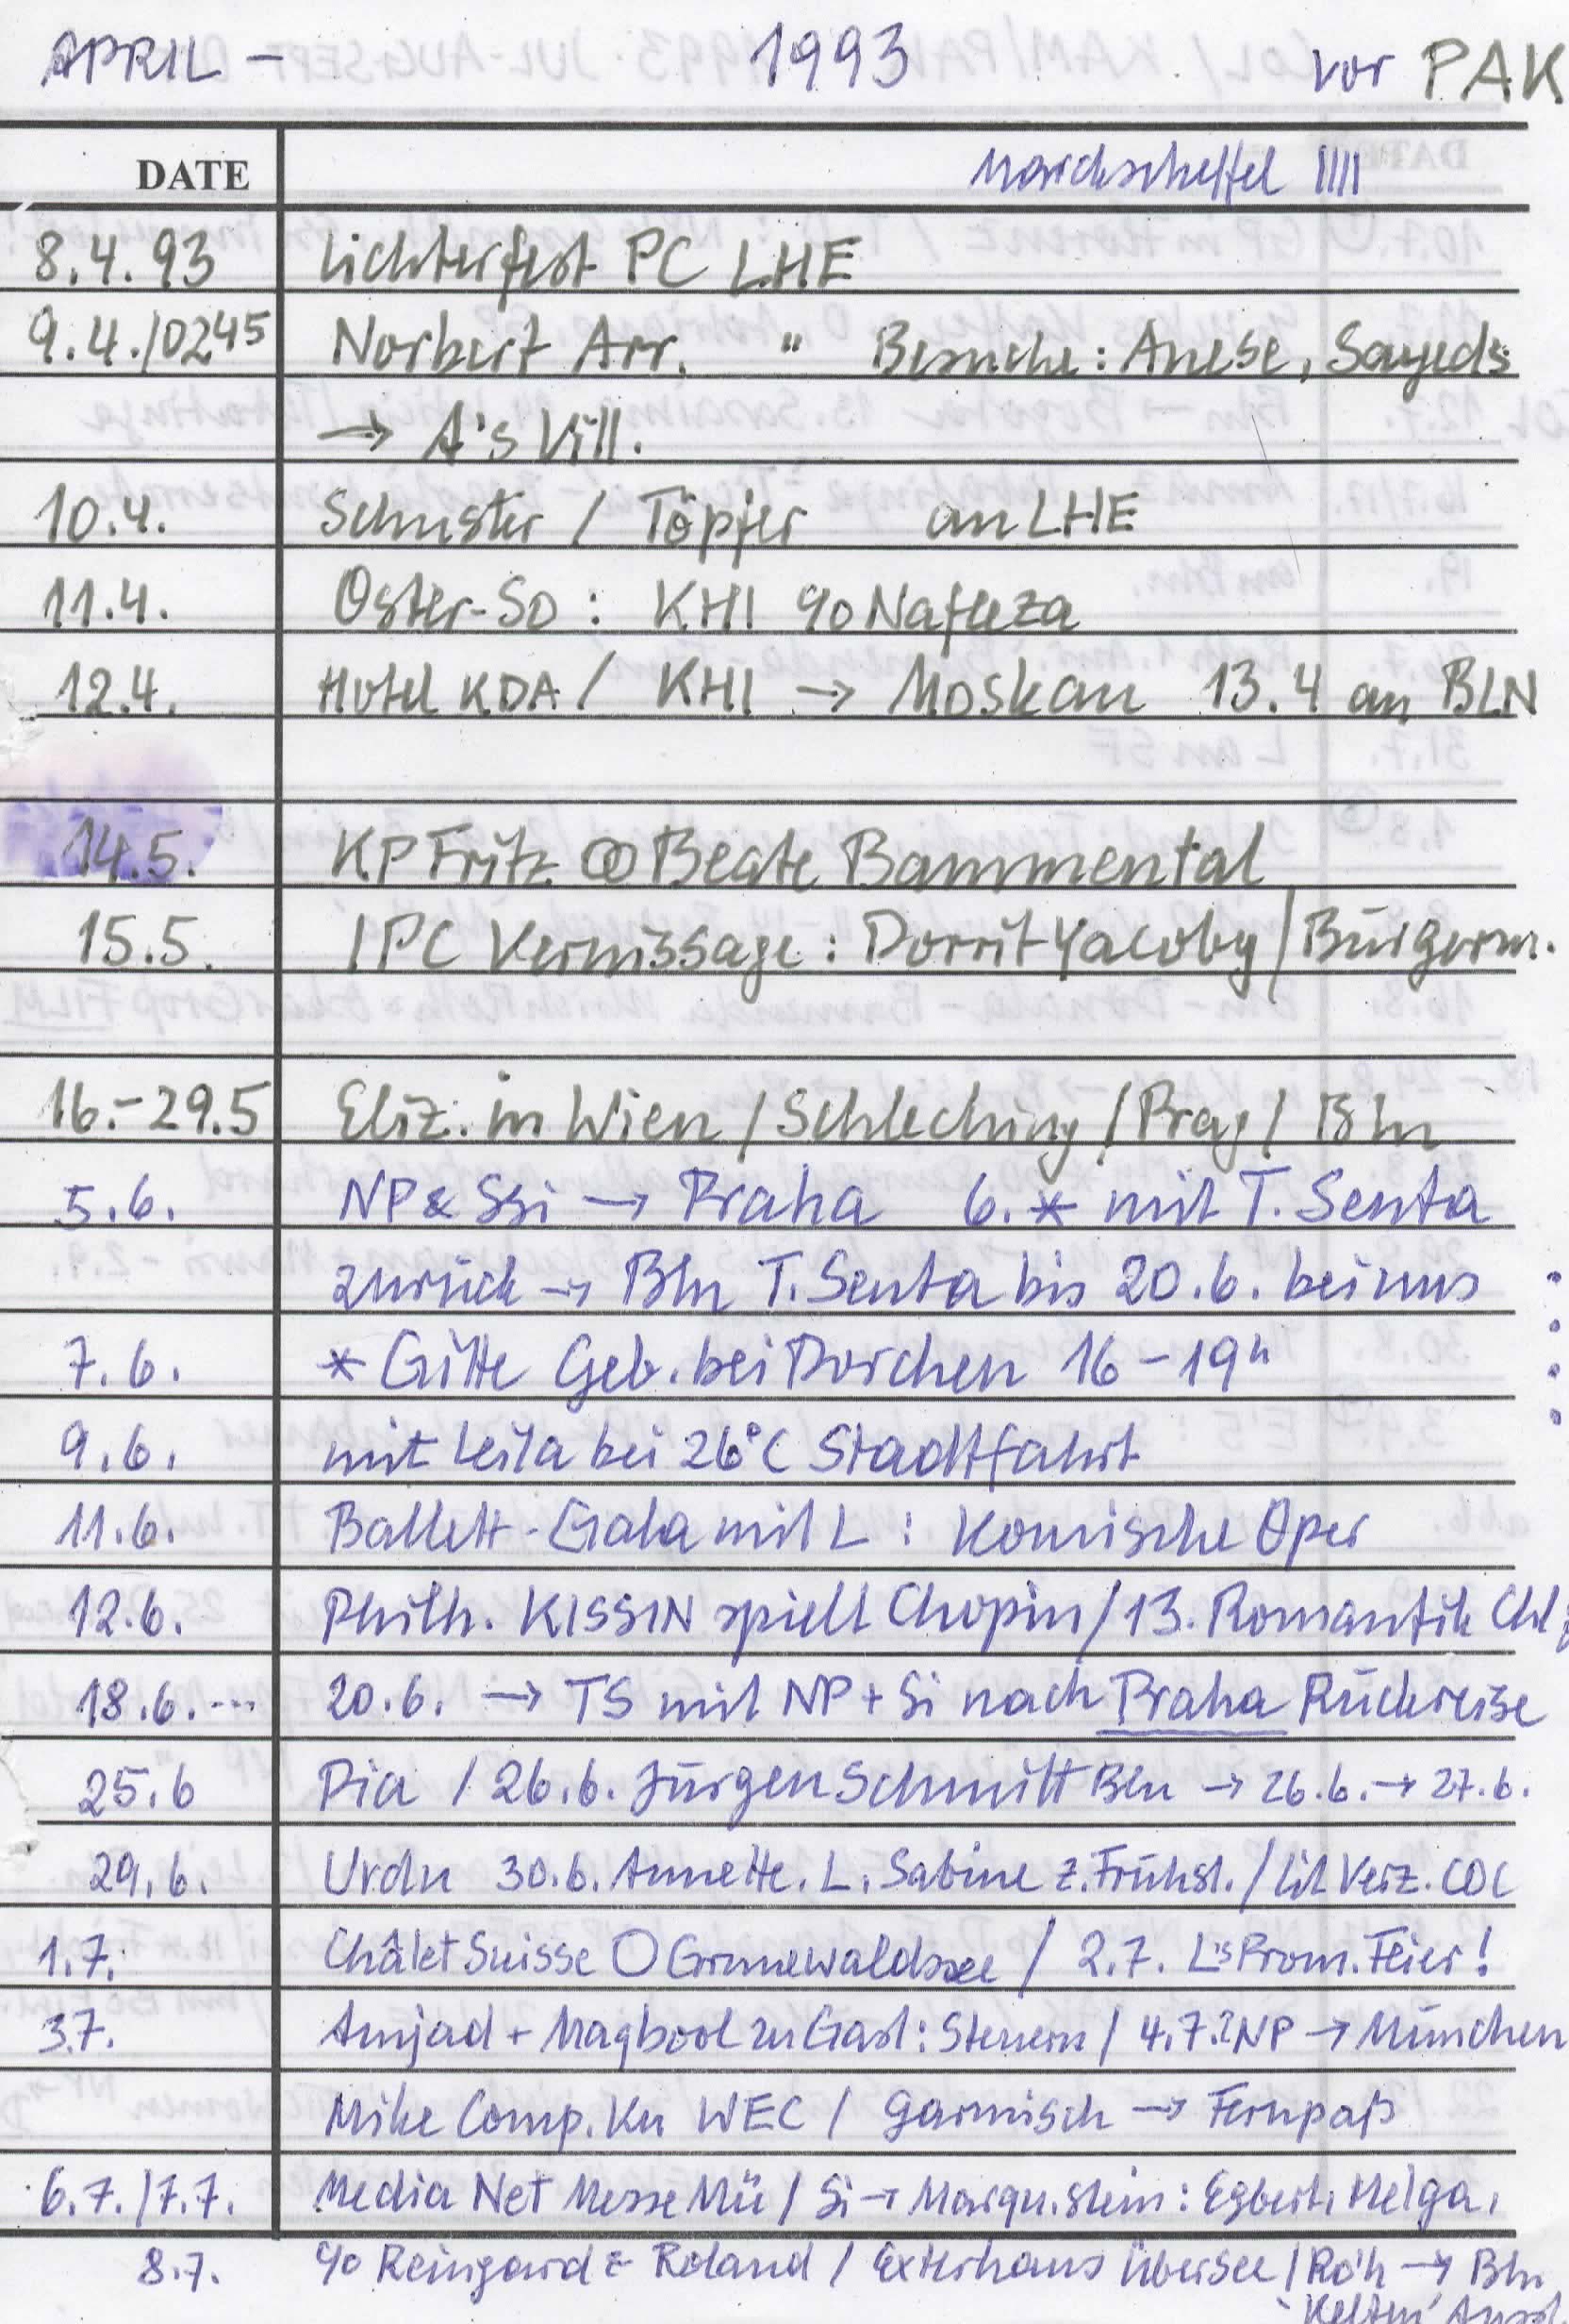 APRIL - 1993 vor PAK
DATE
8.4.93 Lichterfest PC LHE
9.4./0245 Norbert Arr. " Besuche: Anese, Sayeds
→ A's Vill.
10.4. Schuster / Töpfer an LHE
11.4. Oster-So: KHI c/o Nafeeza
12.4. Hotel KDA / KHI → Moskau 13.4 an BLN
14.5. KP Fritz ∞ Beate Bammental
15.5. IPC Vernissage: Dorrit Yacoby / Bürgerm.
16.-29.5 Eliz. in Wien / Schleching / Prag / Bln
5.6. NP & Ssi → Praha 6.* mit T. Senta
zurück → Bln T. Senta bis 20.6. bei uns
7.6. * Gitte Geb. bei Dorchen 16-19h
9.6. mit Leila bei 26°C Stadtfahrt
11.6. Ballett-Gala mit L: Komische Oper
12.6. Philh. KISSIN spielt Chopin / 13. Romantik
18.6. --- 20.6. → TS mit NP + Si nach Praha Rückreise
25.6 Pia / 26.6. Jürgen Schmitt Bln → 26.6. → 27.6.
29.6. Urdu 30.6. Annette. L. Sabine z. Frühst. / Lit Verz.
1.7. Châlet Suisse O Grunewaldsee / 2.7. L's Prom. Feier!
3.7. Amjad + Maqbool zu Gast: / 4.7. NP → München
Mike Comp. Ku WEC / Garmisch → Fernpaß
6.7./7.7. Media Net Messe Mü / Si → Marqu.stein: Egbert, Helga,
8.7. c/o Reingard & Roland / Exterhaus Übersee / Röh → Bln